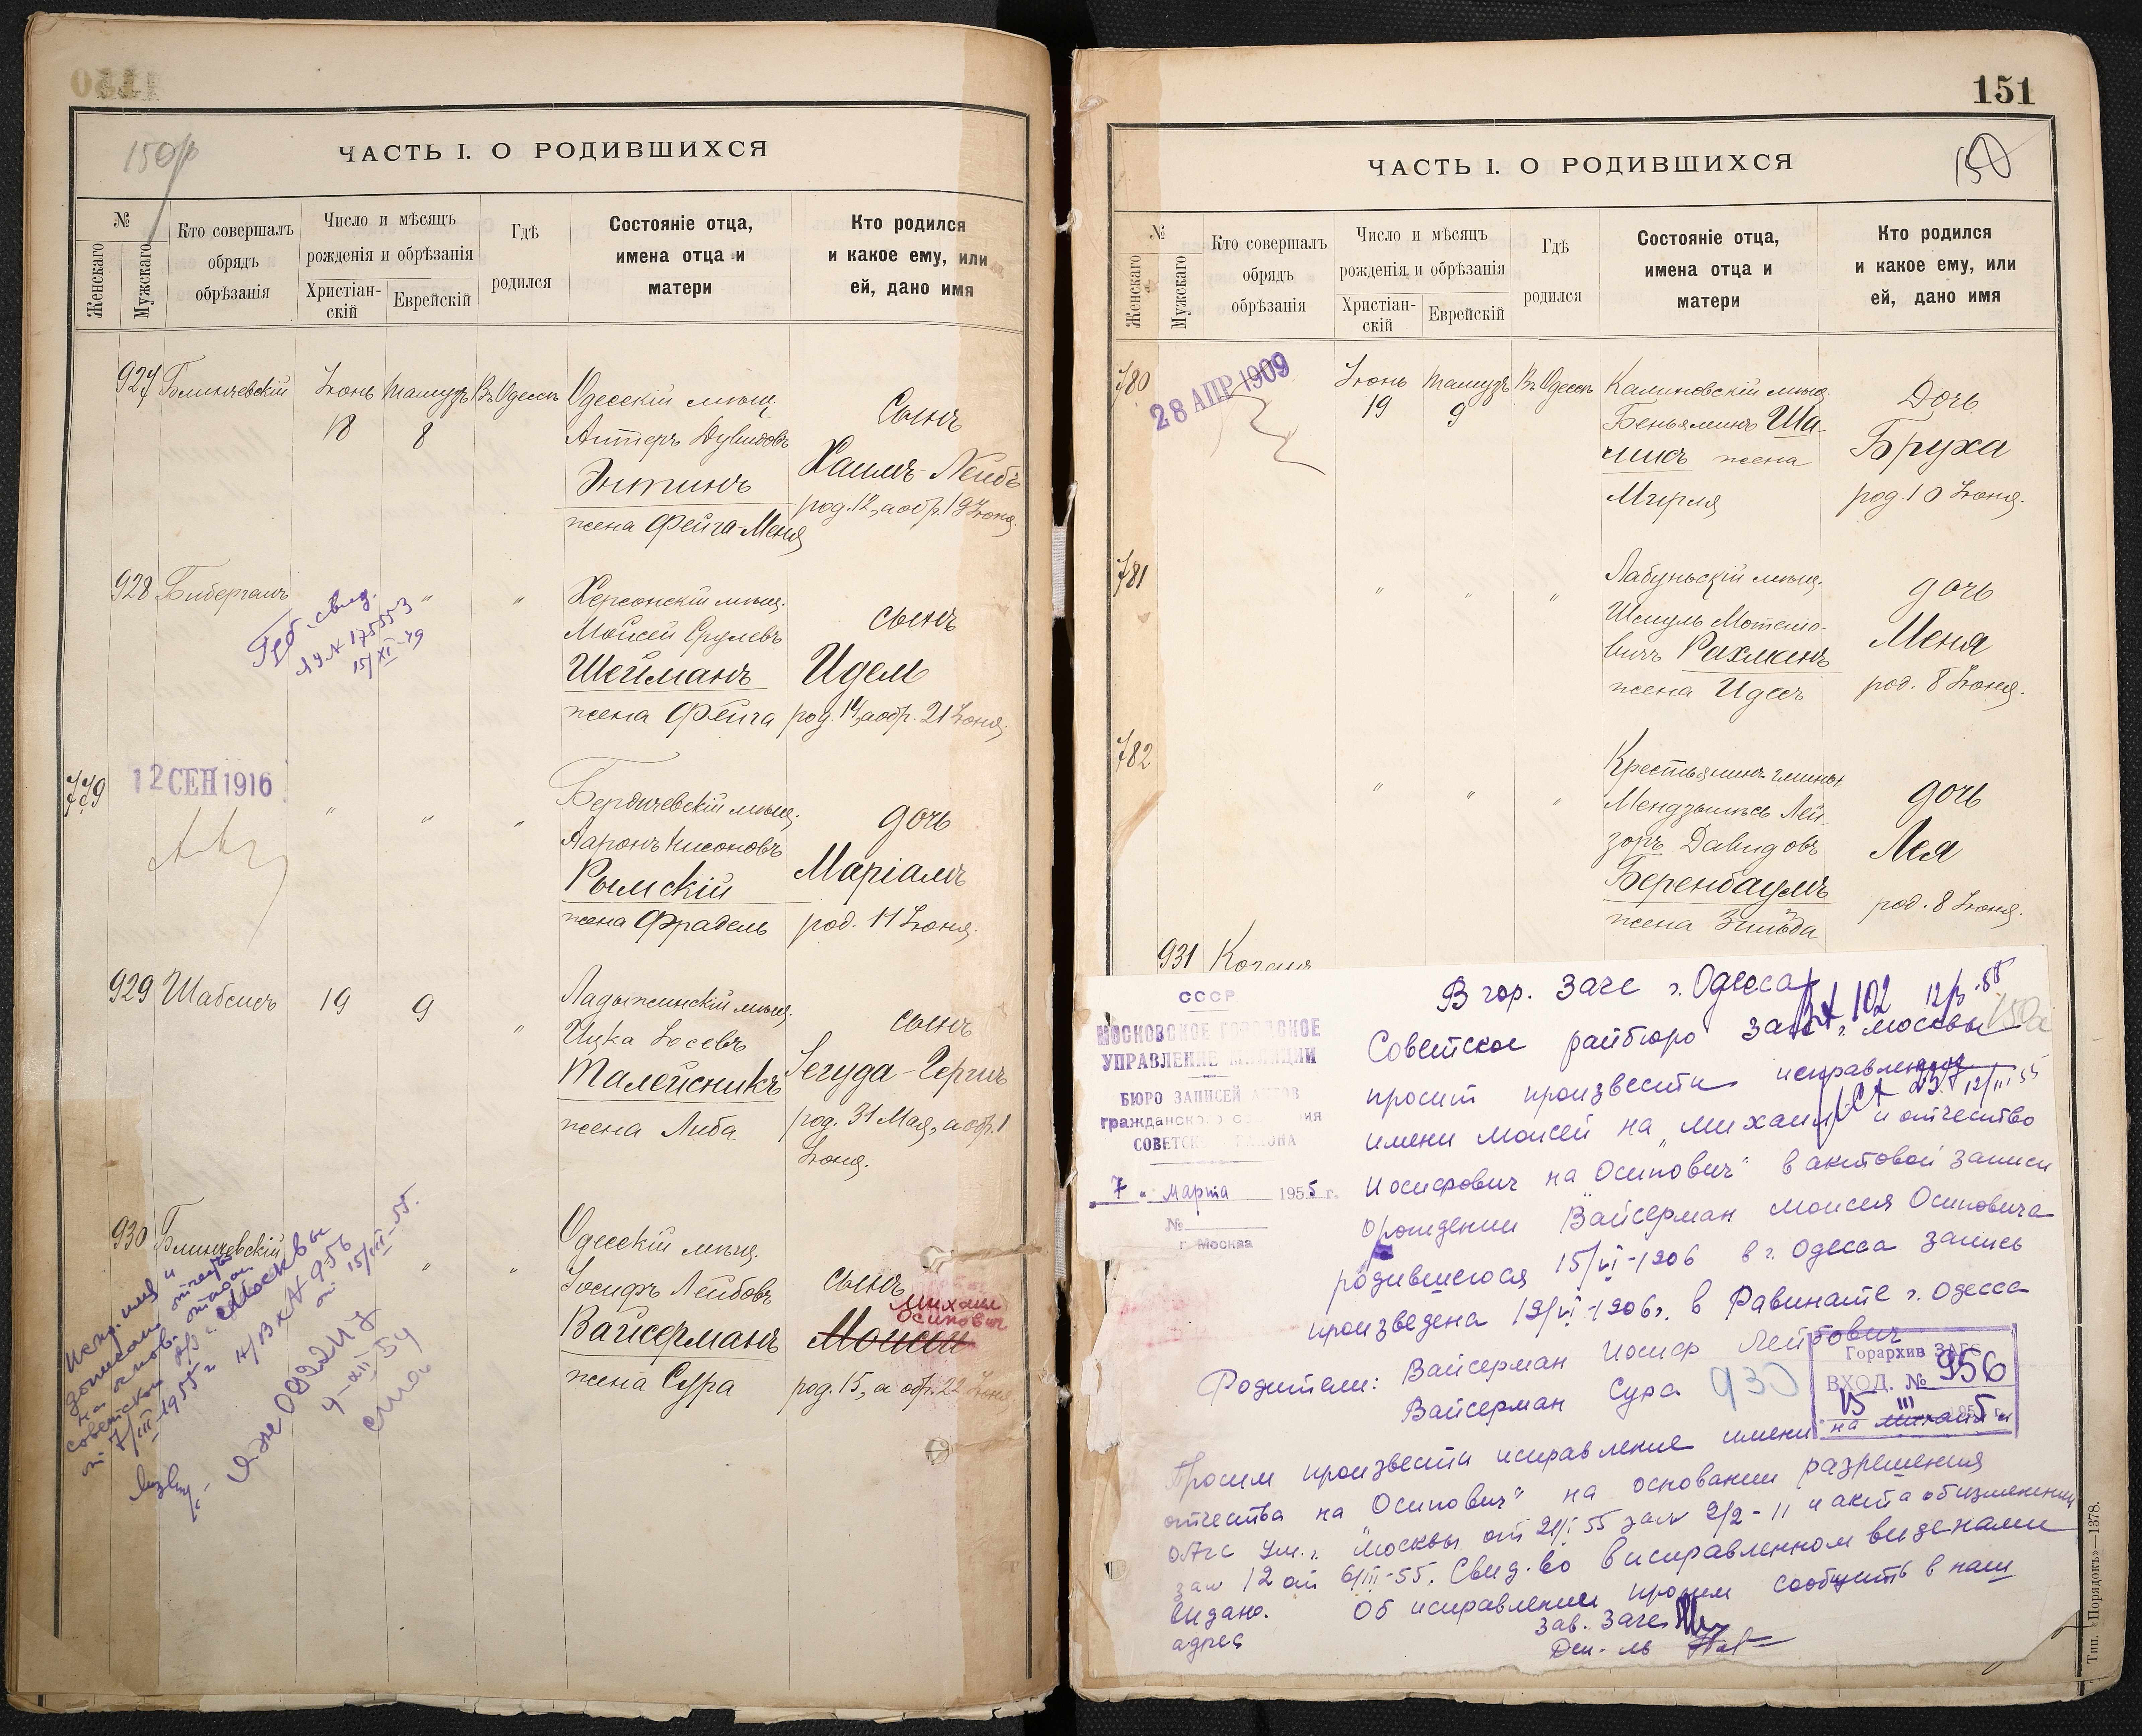 150
150
ЧАСТЬ I. О РОДИВШИХСЯ
№
Женскаго
Мужскаго
Кто совершалъ
обрядъ
обрѣзанія
Число и мѣсяцъ
рожденія и обрѣзанія
Христіан-
скій
Еврейскій
Гдѣ
родился
Состояніе отца,
имена отца и
матери
Кто родился
и какое ему, или
ей, дано имя
927 Блинчевскій Іюнь Тамузъ Въ Одессѣ Одесскій мѣщ.
18 8
Антеръ Дувидовъ
Энтинъ
жена Фейга-Меня
Сынъ
Хаимъ-Лейбъ
род. 12, а обр. 19 Іюня.
928 Бибергалъ " "
15/XI-49
Херсонскій мѣщ.
Мойсей Срулевъ
Шейманъ
жена Фейга
сынъ
Идел
род. 14, а обр. 21 Іюня.
779
12 СЕН 1916
" " "
Бердичевскій мѣщ.
Ааронъ Нисоновъ
Рымскій
жена Фрадель
дочь
Маріамъ
род. 11 Іюня.
929 Шабсисъ 19 9 "
Ладыжинскій мѣщ.
Ицка Іосевъ
Талейсникъ
жена Либа
сынъ
Іегуда-Гершъ
род. 31 Мая, а обр. 1
Іюня.
930 Блинчевскій " "
Одесскій мѣщ.
Іосифъ Лейбовъ
Вайсерманъ
жена Сура
сынъ
Михаил
Осипович
Моисей
род. 15, а обр. 22 Іюня
Испр. имя и
отчество
записали
на основ.
советского
г. Москвы
от 7/III-1955 г
Вх № 956
от 15/III-55.
151
150
ЧАСТЬ I. О РОДИВШИХСЯ
№
Женскаго
Мужскаго
Кто совершалъ
обрядъ
обрѣзанія
Число и мѣсяцъ
рожденія и обрѣзанія
Христіан-
скій
Еврейскій
Гдѣ
родился
Состояніе отца,
имена отца и
матери
Кто родился
и какое ему, или
ей, дано имя
780
28 АПР 1909
Іюнь Тамузъ Въ Одессѣ
19 9
Калиновскій мѣщ.
Беньяминъ Ша-
жена
Мирля
Дочь
Бруха
род. 10 Іюня.
781 " " "
Лабуньскій мѣщ.
Шмуль Мотелю-
вичъ Рахманъ
жена Идесъ
дочь
Меня
род. 8 Іюня.
782 " " "
Крестьянинъ гмины
Лей-
зоръ Давидовъ
Беренбаумъ
жена Зильда
дочь
Лея
род. 8 Іюня.
931 Коганъ
СССР
МОСКОВСКОЕ ГОРОДСКОЕ
УПРАВЛЕНИЕ МИЛИЦИИ
БЮРО ЗАПИСЕЙ АКТОВ
гражданского состояния
СОВЕТСКОГО РАЙОНА
"7" марта 1955 г.
№
г. Москва
В гор. Загс г. Одесса
102
Советское райбюро Загс г. Москвы
просит произвести исправление
12/III 55
имени Моисей на "Михаил" и отчество
Иосифович на "Осипович" в актовой записи
о рождении Вайсерман Моисея Осиповича
родившегося 15/VI-1906 в г. Одесса запись
произведена 19/VI-1906г. в Равинате г. Одесса
Родители: Вайсерман Иосиф Лейбович
Вайсерман Сура
930
Горархив ЗАГС
ВХОД. № 956
15 III 1955 г.
Просим произвести исправление имени на Михаил и
отчества на "Осипович" на основании разрешения
ОАГС УМ г. Москвы от 21/I 55 за № 2/2-11 и акта об изменении
за № 12 от 6/III-55. Свид-во в исправленном виде нами
видано. Об исправлении просим сообщить в наш
адрес
Зав. Загс
Дел-ль
Тип. «Порядокъ»—1378.